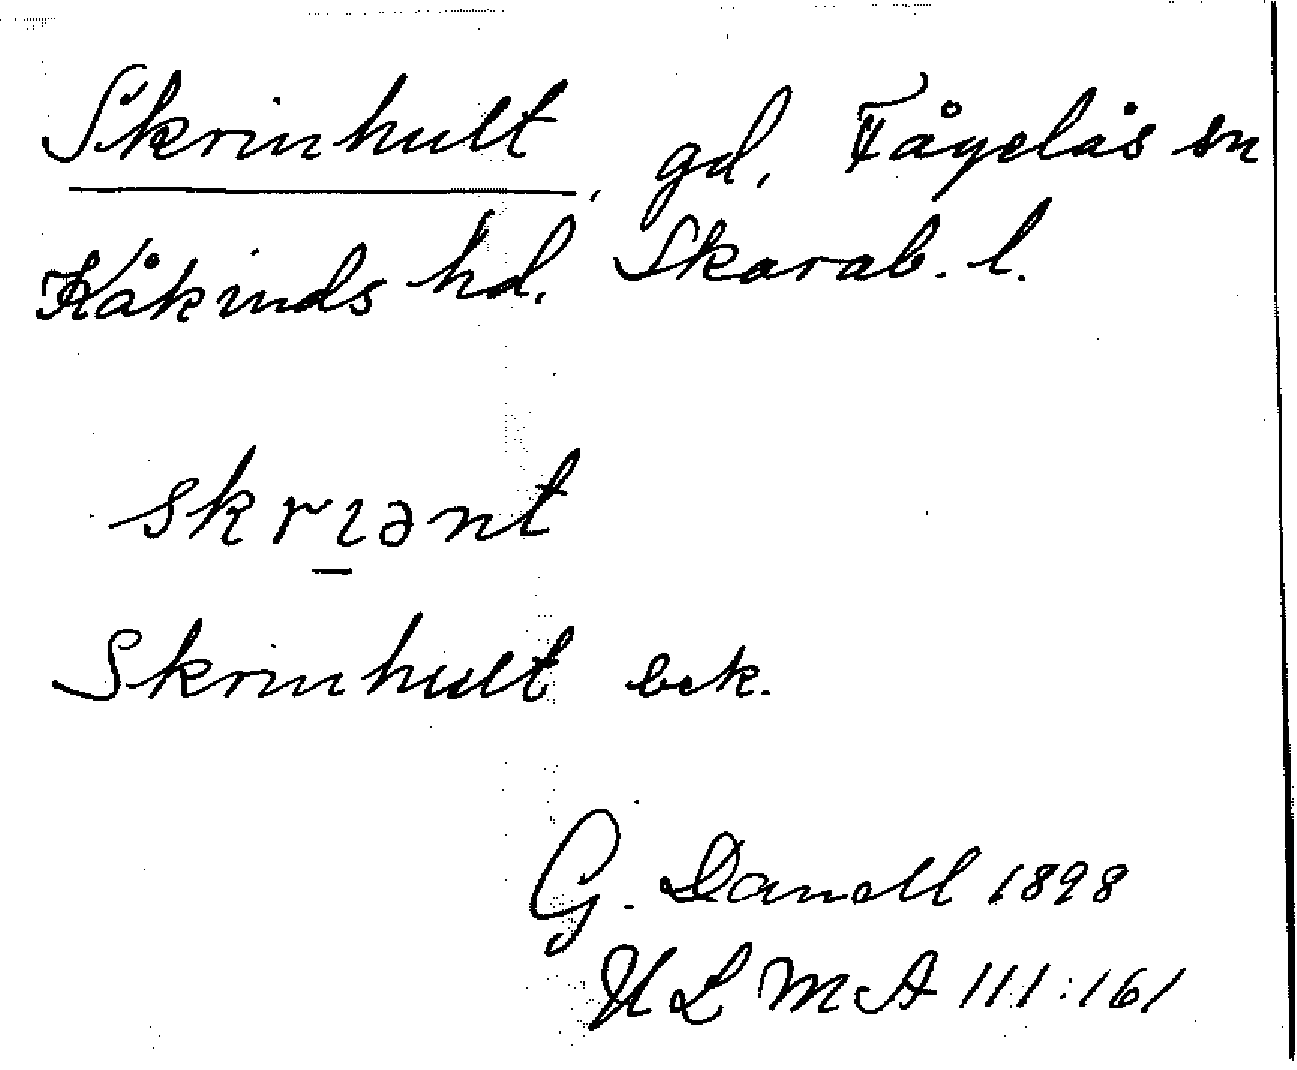 Skrinhult, gd, Fågelås sn
Kåkinds hd, Skarab. l.
skrɪənt
Skrinhult bek.
G. Danell 1898
ULMA 111:161